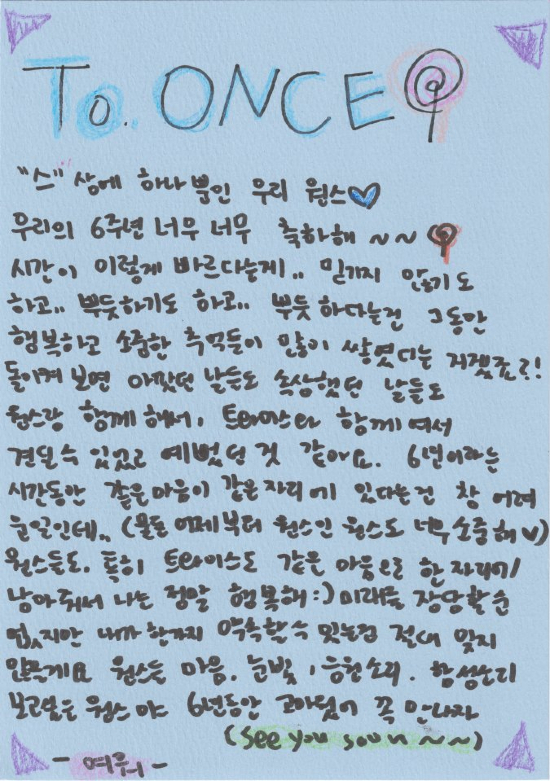 To. ONCE
"스" 상에 하나 뿐인 우리 원스
우리의 6주년 너무 너무 축하해 ~~
시간이 이렇게 빠르다는게.. 믿기지 않기도
하고.. 뿌듯하기도 하고.. 뿌듯하다는건 그동안
행복하고 소중한 추억들이 많이 쌓였다는 거겠죠?!
돌이켜 보면 아팠던 날들도 속상했던 날들도
원스랑 함께 해서, 트와이스와 함께여서
견딜수 있었고 예뻤던 것 같아요. 6년이라는
시간동안 같은마음이 같은자리에 있다는건 참 어려
운일인데.. (물론 어제부터 원스인 원스도 너무 소중해♡)
원스들도, 특히 트와이스도 같은 마음으로 한 자리에
남아줘서 나는 정말 행복해 :) 미래를 장담할순
없지만 내가 한가지 약속할수 있는건 절대 잊지
않을게요 원스들 마음, 눈빛, 응원소리, 함성소리
보고싶은 원스야 6년동안 고마웠어 꼭 만나자
(see you soon ~~~)